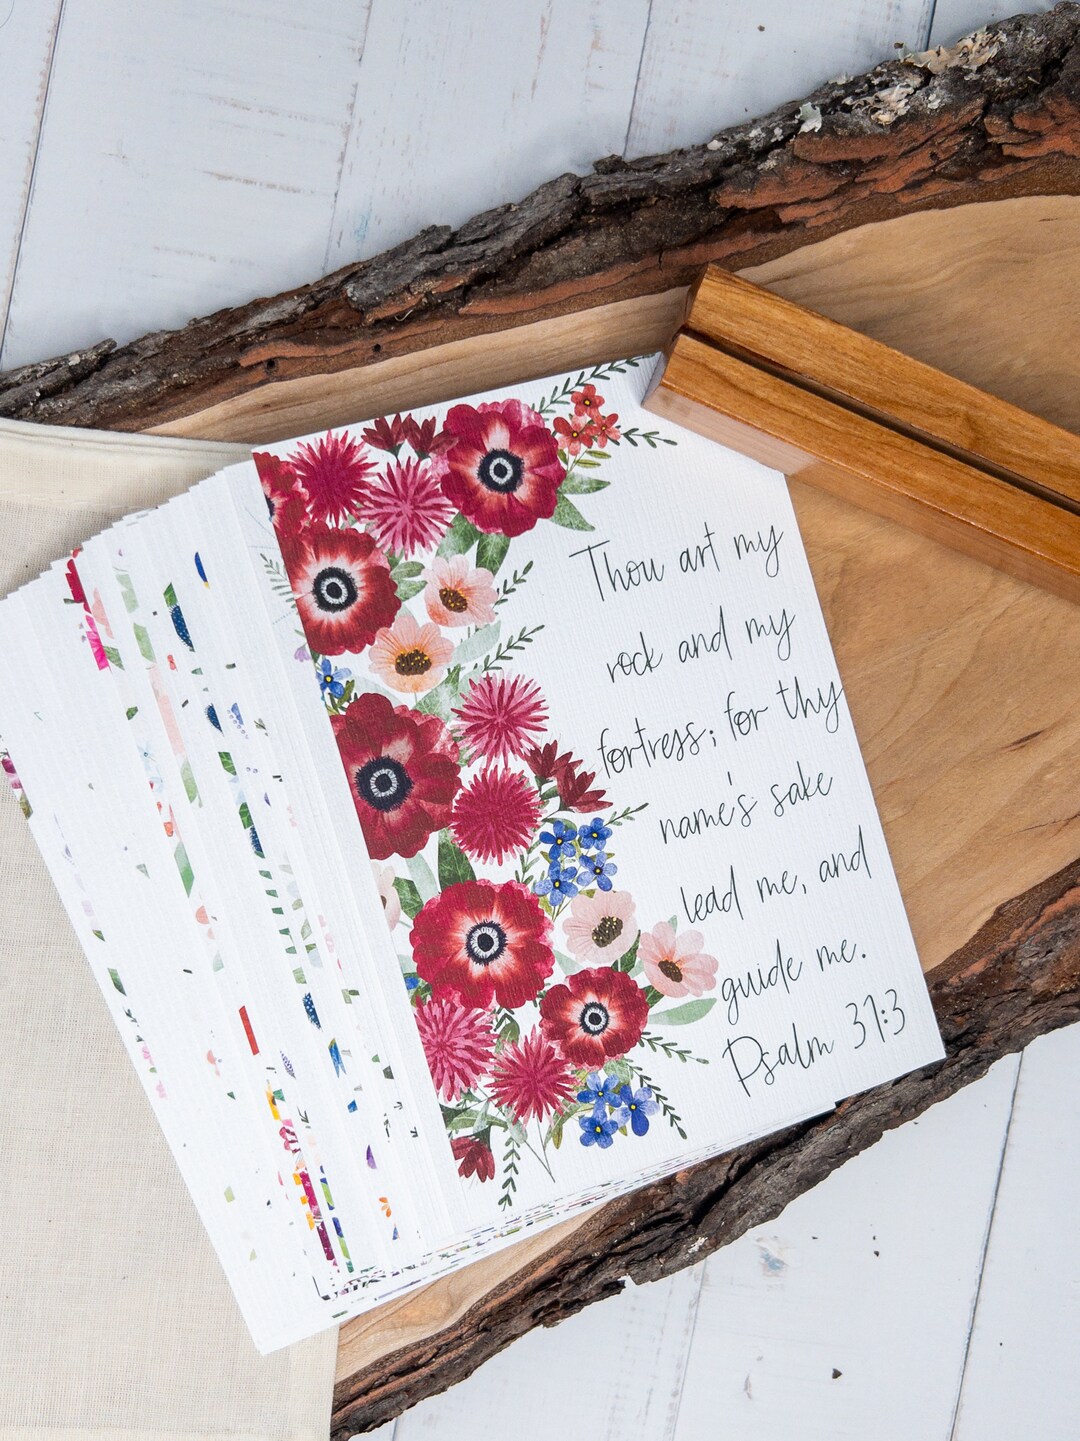 Thou art my
rock and my
fortress; for thy
name's sake
lead me, and
guide me.
Psalm 31:3